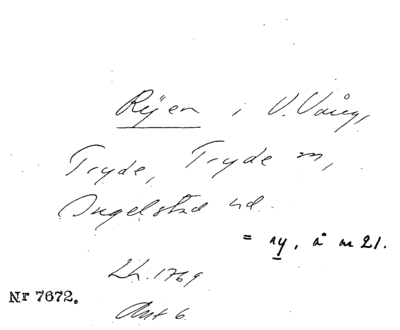 Ryen i V. Vång,
Tryde, Tryde sn,
Ingelstad hd.
= ry, å n 21.
Lh. 1769
Nr 7672.
Akt 6